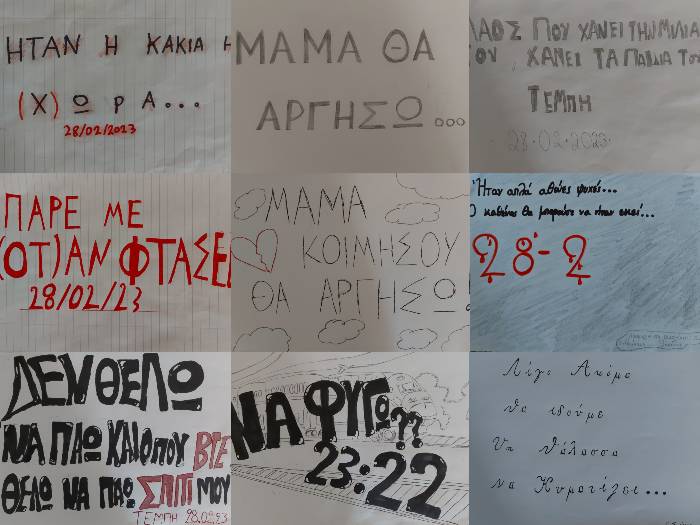 ΗΤΑΝ Η ΚΑΚΙΑ Η
(Χ)ΩΡΑ...
28/02/2023
ΜΑΜΑ ΘΑ
ΑΡΓΗΣΩ...
ΛΑΟΣ ΠΟΥ ΧΑΝΕΙ ΤΗΝ ΜΙΛΙΑ
ΤΟΥ , ΧΑΝΕΙ ΤΑ ΠΑΙΔΙΑ ΤΟΥ
ΤΕΜΠΗ
28.02.2023
ΠΑΡΕ ΜΕ
(ΟΤ)ΑΝ ΦΤΑΣΕΙ
28/02/23
ΜΑΜΑ
ΚΟΙΜΗΣΟΥ
ΘΑ ΑΡΓΗΣΩ!
Ήταν απλά αθώες ψυχές...
Ο καθένας θα μπορούσε να ήταν εκεί...
28-2
ΔΕΝ ΘΕΛΩ
ΝΑ ΠΑΩ ΚΑΙ ΟΠΟΥ ΒΓΕΙ
ΘΕΛΩ ΝΑ ΠΑΩ ΣΠΙΤΙ ΜΟΥ
ΤΕΜΠΗ 28.02.23
ΝΑ ΦΥΓΩ??
23:22
Λίγο Ακόμα
θα ιδούμε
Την θάλασσα
να Κυματίζει...